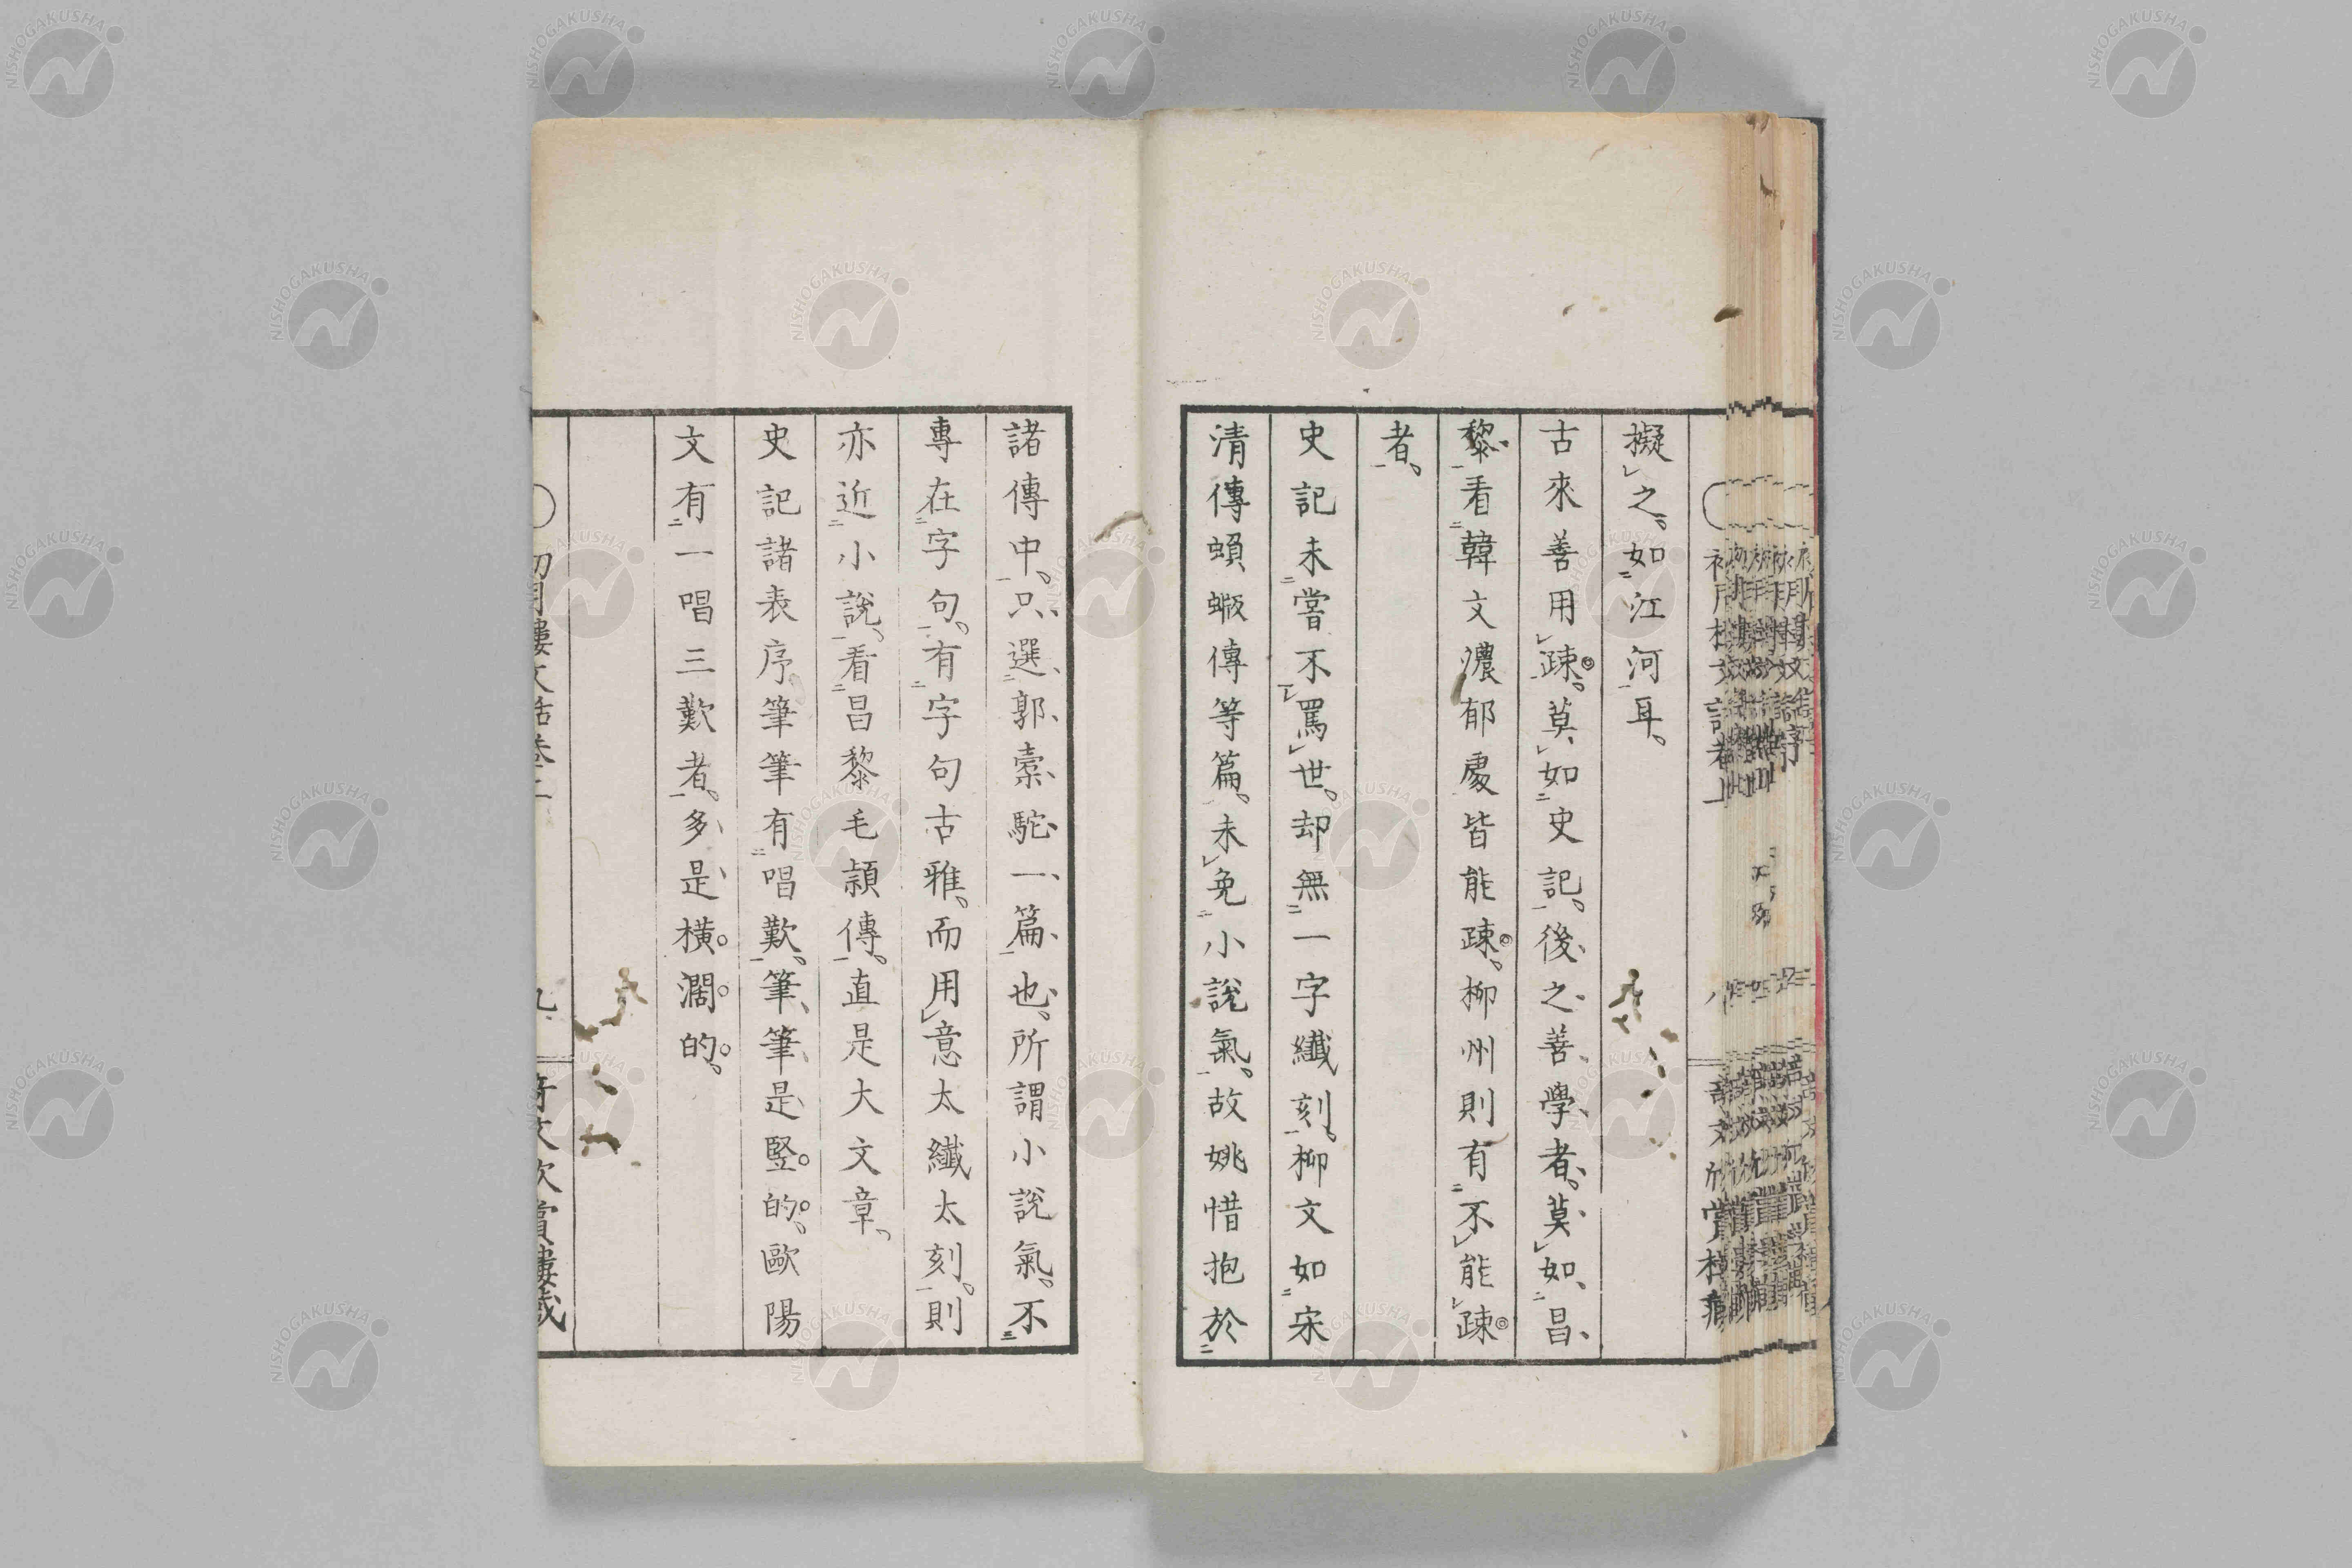 擬之。如江河耳。
古來善用疎。莫如史記。後之善學者。莫如昌
黎。看韓文濃郁處皆能疎。柳州則有不能疎
者。
史記未嘗不罵世。却無一字纖刻。柳文如宋
清傳蝜蝂傳等篇。未免小說氣。故姚惜抱於
諸傳中。只選郭橐駝一篇也。所謂小說氣。不
專在字句。有字句古雅。而用意太纖太刻。則
亦近小說。看昌黎毛頴傳。直是大文章。
史記諸表序。筆筆有唱歎。筆筆是竪的。歐陽
文有一唱三歎者。多是橫濶的。
初月樓文話卷二
九
奇文欣賞樓藏
NISHOGAKUSHA